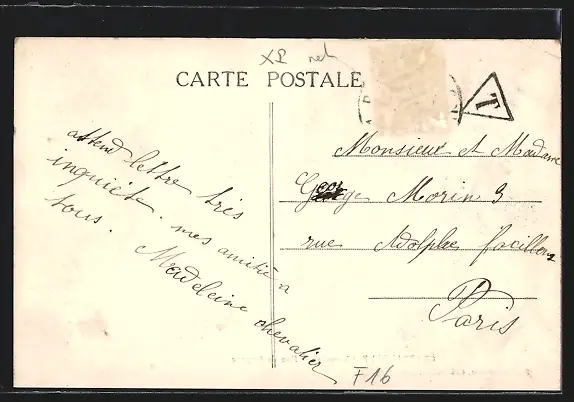 XP net
CARTE POSTALE
T
attend lettre très
inquiète. mes amitié a
tous.
Madeleine chevalier
Monsieur et Madame
George Morin 3
rue Adolphe focillon
Paris
F16